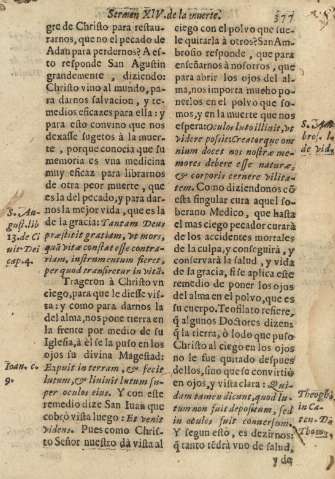 Sermon XIV. de la muerte. 377
gre de Christo para restau-
rarnos, que no el pecado de
Adan para perdernos? A es-
to responde San Agustin
grandemente, diziendo:
Christo vino al mundo, pa-
ra darnos salvacion, y re-
medios eficazes para ella: y
para esto convino que nos
dexasse sugetos à la muer-
te, porque conocia que su
memoria es vna medicina
muy eficaz para librarnos
de otra peor muerte, que
es la del pecado, y para dar-
nos la mejor vida, que es la
de la gracia: Tantam Deus
præstitit gratiam, vt mors,
quā vitæ constat esse contra-
riam, instrumentum fieret,
per quod transiretur in vitā.
Trageron à Christo vn
ciego, para que le diesse vis-
ta: y como para darnos la
del alma, nos pone tierra en
la frente por medio de su
Iglesia, à èl se la puso en los
ojos su divina Magestad:
Expuit in terram, & fecit
lutum, & linivit lutum su-
per oculos eius. Y con este
remedio dize San Iuan que
cobrò vista luego: Et venit
videns. Pues como Chris-
to Señor nuestro dà vista al
S. Au-
gust. lib
13. de Ci
vit. Dei
cap. 4.
Ioan. c.
9.
ciego con el polvo que sue-
le quitarla à otros? San Am-
brosio responde, que para
enseñarnos à nosotros, que
para abrir los ojos del al-
ma, nos importa mucho po-
nerlos en el polvo que so-
mos, y en la muerte que nos
espera: Oculos luto illinit, vt
videre possit: Creator que om
nium docet nos nostræ me-
mores debere esse naturæ,
& corporis cernere vilita-
tem. Como diziendonos cō
esta singular cura aquel so-
berano Medico, que hasta
el mas ciego pecador curarà
de los accidentes mortales
de la culpa, y conseguirà, y
conservarà la salud, y vida
de la gracia, si se aplica este
remedio de poner los ojos
del alma en el polvo, que es
su cuerpo. Teofilato refiere,
q̄ algunos Doctores dizen:
q̄ la tierra, ò lodo que puso
Christo al ciego en los ojos
no le fue quitado despues
dellos, sino que se convirtiò
en ojos, y vista clara: Qui-
dam tamen dicunt, quod lu-
tum non fuit depositum, sed
in oculos fuit conversum.
Y segun esto, es dezirnos:
q̄ tanto tēdrà vno de salud,
y de
S. Am
bros. l.
de vid.
Theoph.
in Ca-
ten. D.
Thom.